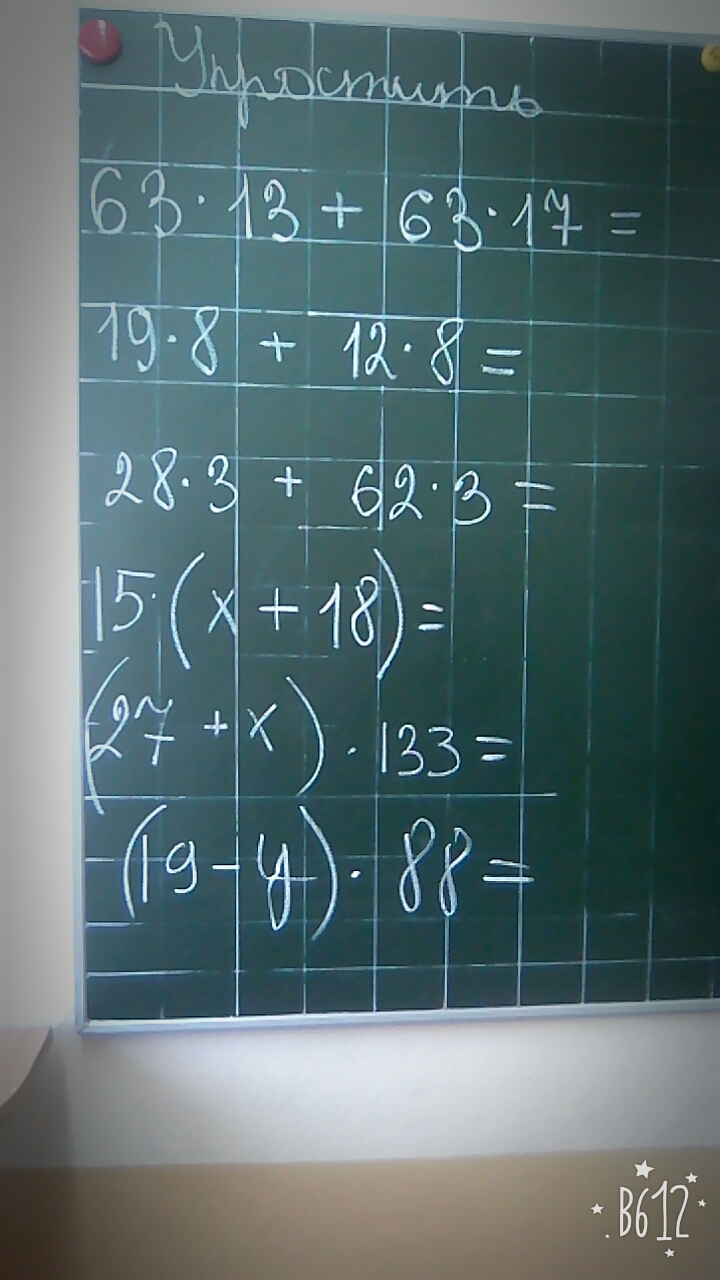 Упростить
63·13 + 63·17 =
19·8 + 12·8 =
28·3 + 62·3 =
15·(x + 18) =
(27 + x)·133 =
(19 - y)·88 =
B612